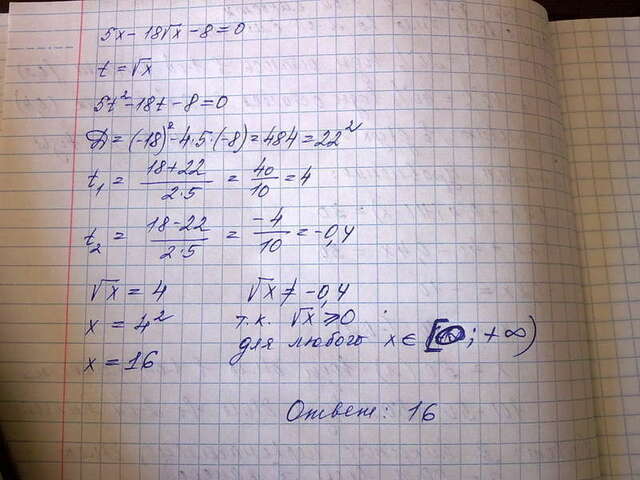 5x - 18√x - 8 = 0
t = √x
5t² - 18t - 8 = 0
Д = (-18)² - 4·5·(-8) = 484 = 22²
t₁ = (18+22)/(2·5) = 40/10 = 4
t₂ = (18-22)/(2·5) = -4/10 = -0,4
√x = 4 √x ≠ -0,4
x = 4² т.к. √x ≥ 0
x = 16 для любого x ∈ [0; +∞)
Ответ: 16